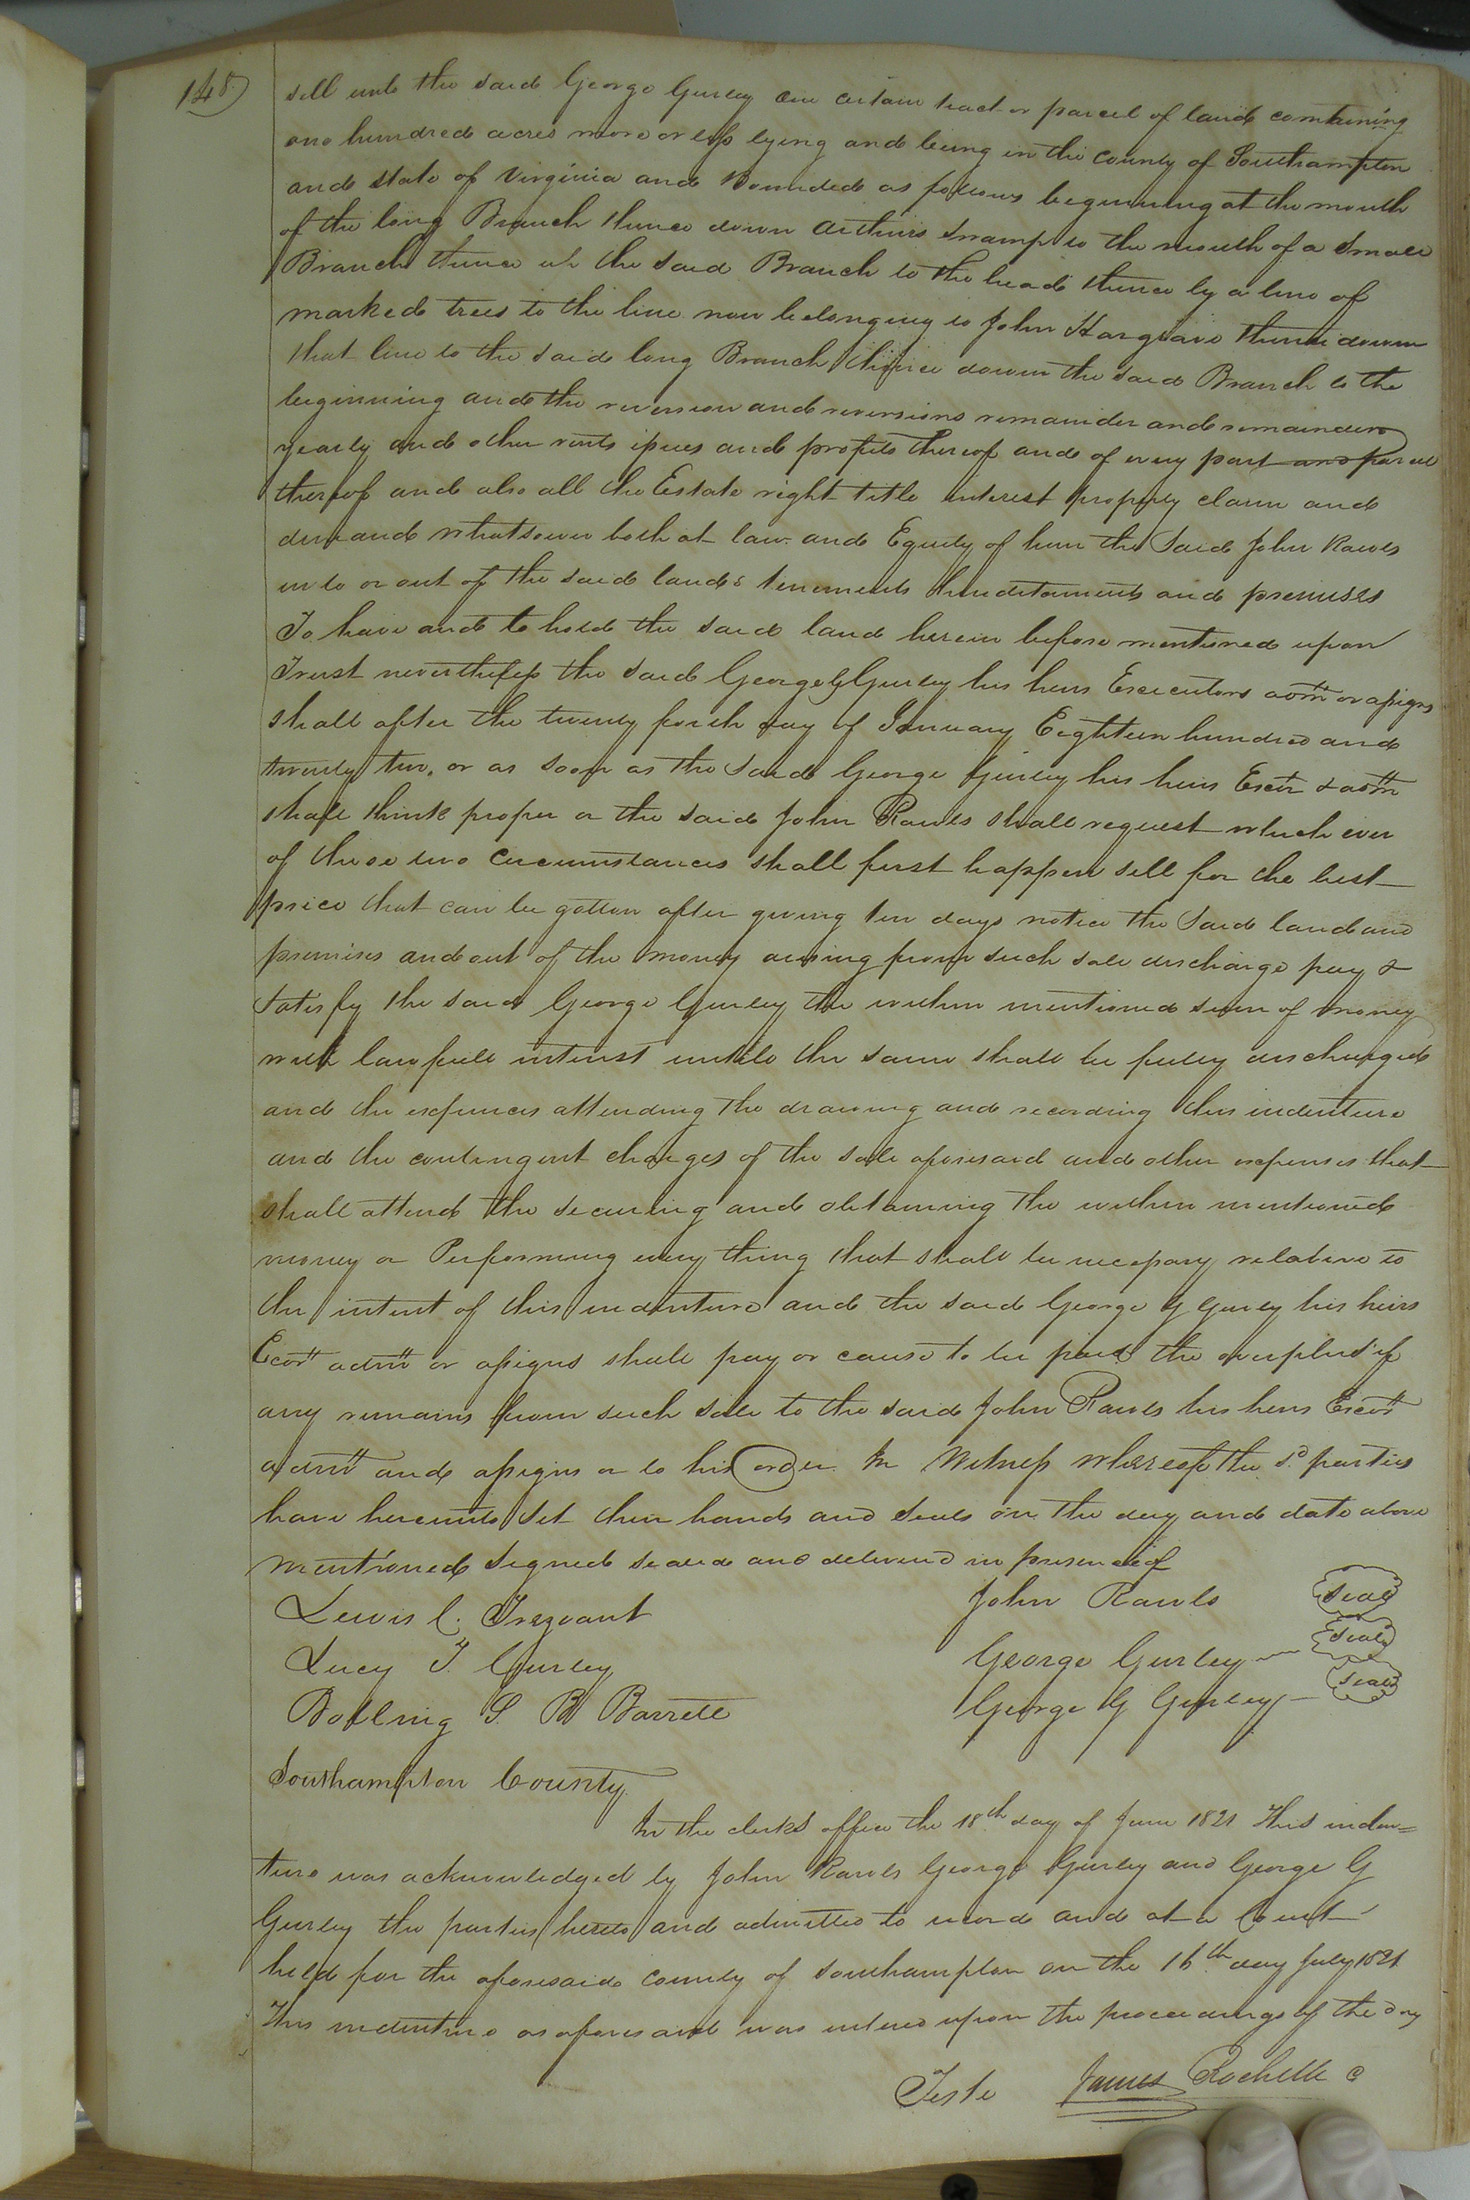 148)
sell unto the said George Gurley one certain tract or parcel of land containing
one hundred acres more or less lying and being in the county of Southampton
and state of Virginia and Bounded as follows beginning at the mouth
of the long Branch thence down Arthurs swamp to the mouth of a small
Branch thence up the said Branch to the head thence by a line of
marked trees to the line now belonging to John Hargrave thence down
that line to the said long Branch thence down the said Branch to the
beginning and the reversion and reversions remainder and remainders
yearly and other rents issues and profits thereof and of every part and parcel
thereof and also all the Estate right title interest property claim and
demand whatsoever both at law and Equity of him the Said John Rawls
in to or out of the said lands tenements hereditaments and premises
To have and to hold the said land herein before mentioned upon
Trust nevertheless the said George G Gurley his heirs Executors admrs or assigns
shall after the twenty forth day of January Eighteen hundred and
twenty two, or as soon as the said George Gurley his heirs Exctrs & admrs
shall think proper or the said John Rawls shall request which ever
of these two circumstances shall first happen sell for the best
price that can be gotton after giving ten days notice the Said land and
premises and out of the money arising from such sale discharge pay &
satisfy the said George Gurley the within mentioned sum of money
with lawfull interest untill the same shall be fully discharged
and the expences attending the drawing and recording this indenture
and the contingent charges of the sale aforesaid and other expenses that
shall attend the securing and obtaining the within mentioned
money or Performing every thing that shall be necessary relative to
the intent of this indenture and the said George G Gurley his heirs
Ecors admrs or assigns shall pay or cause to be paid the overplus if
any remains from such sale to the said John Rawls his heirs Excors
admrs and assigns or to his order In Witness whereof the sd parties
have hereunto Set their hands and seals on the day and date above
mentioned Signed sealed and delivered in presence of
Lewis C. Trezvant John Rawls Seal
Lucy T. Gurley George Gurley Seal
Bolling S. B Barrett George G Gurley Seal
Southampton County
In the clerks office the 18th day of June 1821 This inden=
ture was acknowledged by John Rawls George Gurley and George G
Gurley the parties hereto and admitted to record and at a Court
held for the aforesaid county of Southampton on the 16th day July 1821
This indenture as aforesaid was entered upon the proceedings of the day
Teste James Rochelle C